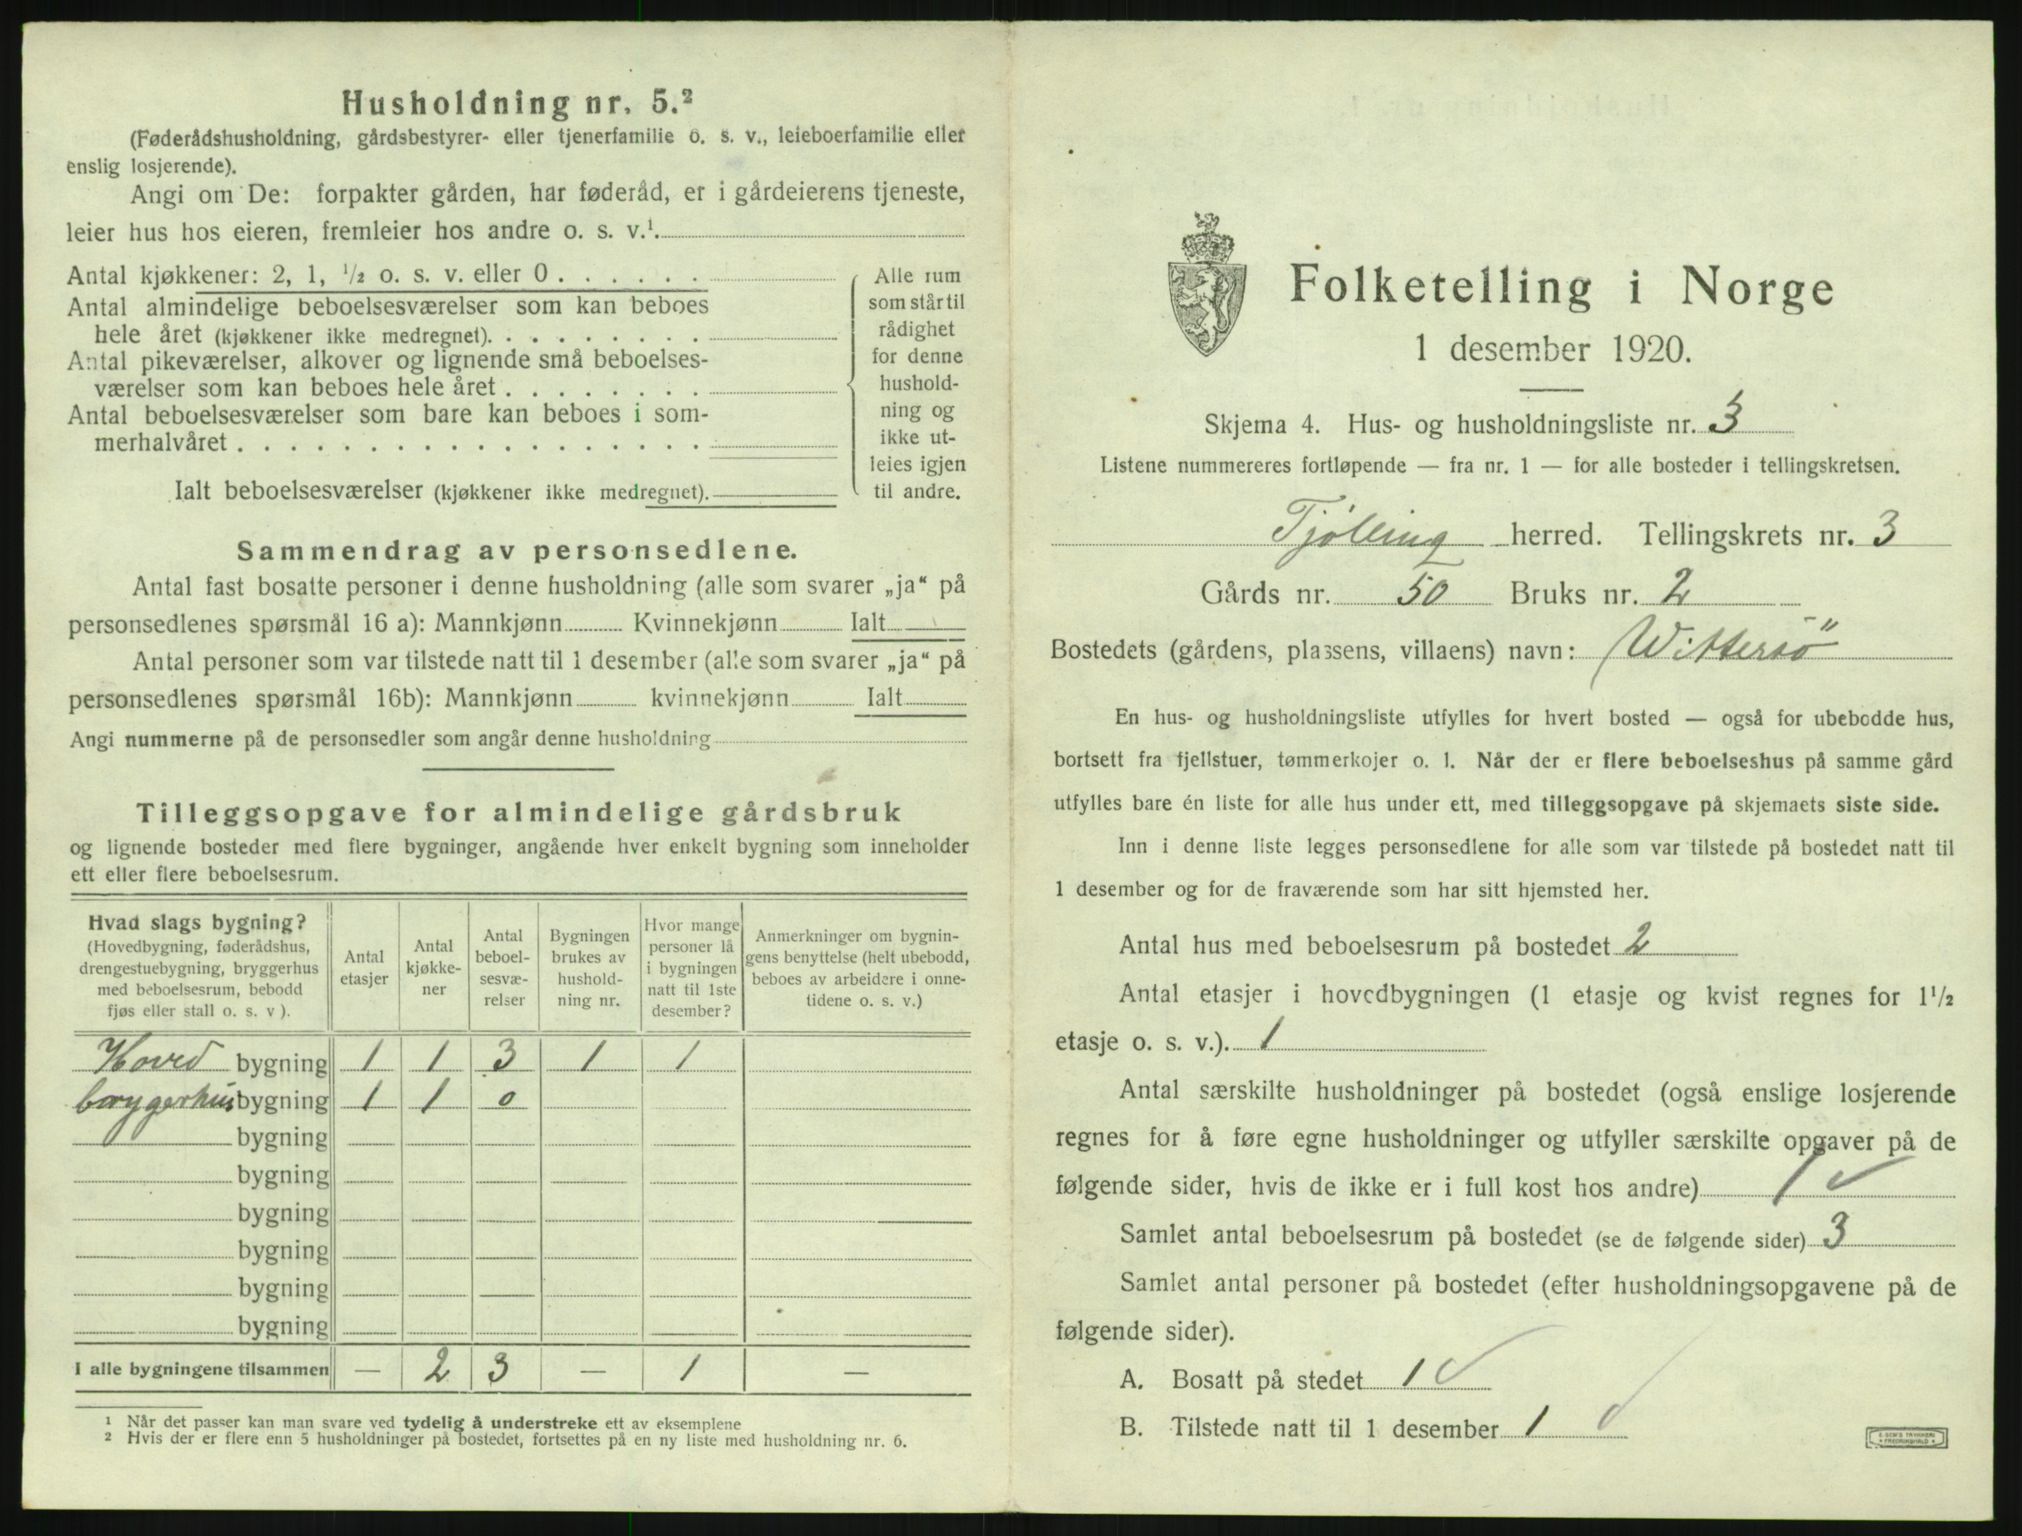 Husholdning nr. 5.²
(Føderådshusholdning, gårdsbestyrer- eller tjenerfamilie o. s. v., leieboerfamilie eller
enslig losjerende).
Angi om De: forpakter gården, har føderåd, er i gårdeierens tjeneste,
leier hus hos eieren, fremleier hos andre o. s. v.¹
Antal kjøkkener: 2, 1, ½ o. s. v. eller 0 . . . . . .
Antal almindelige beboelsesværelser som kan beboes
hele året (kjøkkener ikke medregnet). . . . . . . . .
Antal pikeværelser, alkover og lignende små beboelses-
værelser som kan beboes hele året . . . . . . . .
Antal beboelsesværelser som bare kan beboes i som-
merhalvåret . . . . . . . . . . . . . . . . . .
Ialt beboelsesværelser (kjøkkener ikke medregnet).
Alle rum
som står til
rådighet
for denne
hushold-
ning og
ikke ut-
leies igjen
til andre.
Sammendrag av personsedlene.
Antal fast bosatte personer i denne husholdning (alle som svarer „ja“ på
personsedlenes spørsmål 16 a): Mannkjønn Kvinnekjønn Ialt
Antal personer som var tilstede natt til 1 desember (alle som svarer „ja“ på
personsedlenes spørsmål 16b): Mannkjønn kvinnekjønn Ialt
Angi nummerne på de personsedler som angår denne husholdning
Tilleggsopgave for almindelige gårdsbruk
og lignende bosteder med flere bygninger, angående hver enkelt bygning som inneholder
ett eller flere beboelsesrum.
Hvad slags bygning?
(Hovedbygning, føderådshus,
drengestuebygning, bryggerhus
med beboelsesrum, bebodd
fjøs eller stall o. s. v ).
Antal
etasjer
Antal
kjøkke-
ner
Antal
beboel-
sesvæ-
relser
Bygningen
brukes av
hushold-
ning nr.
Hvor mange
personer lå
i bygningen
natt til 1ste
desember?
Anmerkninger om bygnin-
gens benyttelse (helt ubebodd,
beboes av arbeidere i onne-
tidene o. s. v.)
Hoved bygning 1 1 3 1 1
bryggerhus bygning 1 1 0
bygning
bygning
bygning
bygning
bygning
bygning
I alle bygningene tilsammen — 2 3 — 1 —
¹ Når det passer kan man svare ved tydelig å understreke ett av eksemplene
² Hvis der er flere enn 5 husholdninger på bostedet, fortsettes på en ny liste med husholdning nr. 6.
Folketelling i Norge
1 desember 1920.
Skjema 4. Hus- og husholdningsliste nr. 3
Listene nummereres fortløpende — fra nr. 1 — for alle bosteder i tellingskretsen.
Tjølling herred. Tellingskrets nr. 3
Gårds nr. 50 Bruks nr. 2
Bostedets (gårdens, plassens, villaens) navn: Wittersö
En hus- og husholdningsliste utfylles for hvert bosted — også for ubebodde hus,
bortsett fra fjellstuer, tømmerkojer o. l. Når der er flere beboelseshus på samme gård
utfylles bare én liste for alle hus under ett, med tilleggsopgave på skjemaets siste side.
Inn i denne liste legges personsedlene for alle som var tilstede på bostedet natt til
1 desember og for de fraværende som har sitt hjemsted her.
Antal hus med beboelsesrum på bostedet 2
Antal etasjer i hovedbygningen (1 etasje og kvist regnes for 1½
etasje o. s. v.). 1
Antal særskilte husholdninger på bostedet (også enslige losjerende
regnes for å føre egne husholdninger og utfyller særskilte opgaver på de
følgende sider, hvis de ikke er i full kost hos andre) 1 ✓
Samlet antal beboelsesrum på bostedet (se de følgende sider) 3
Samlet antal personer på bostedet (efter husholdningsopgavene på de
følgende sider).
A. Bosatt på stedet 1 ✓
B. Tilstede natt til 1 desember 1 ✓